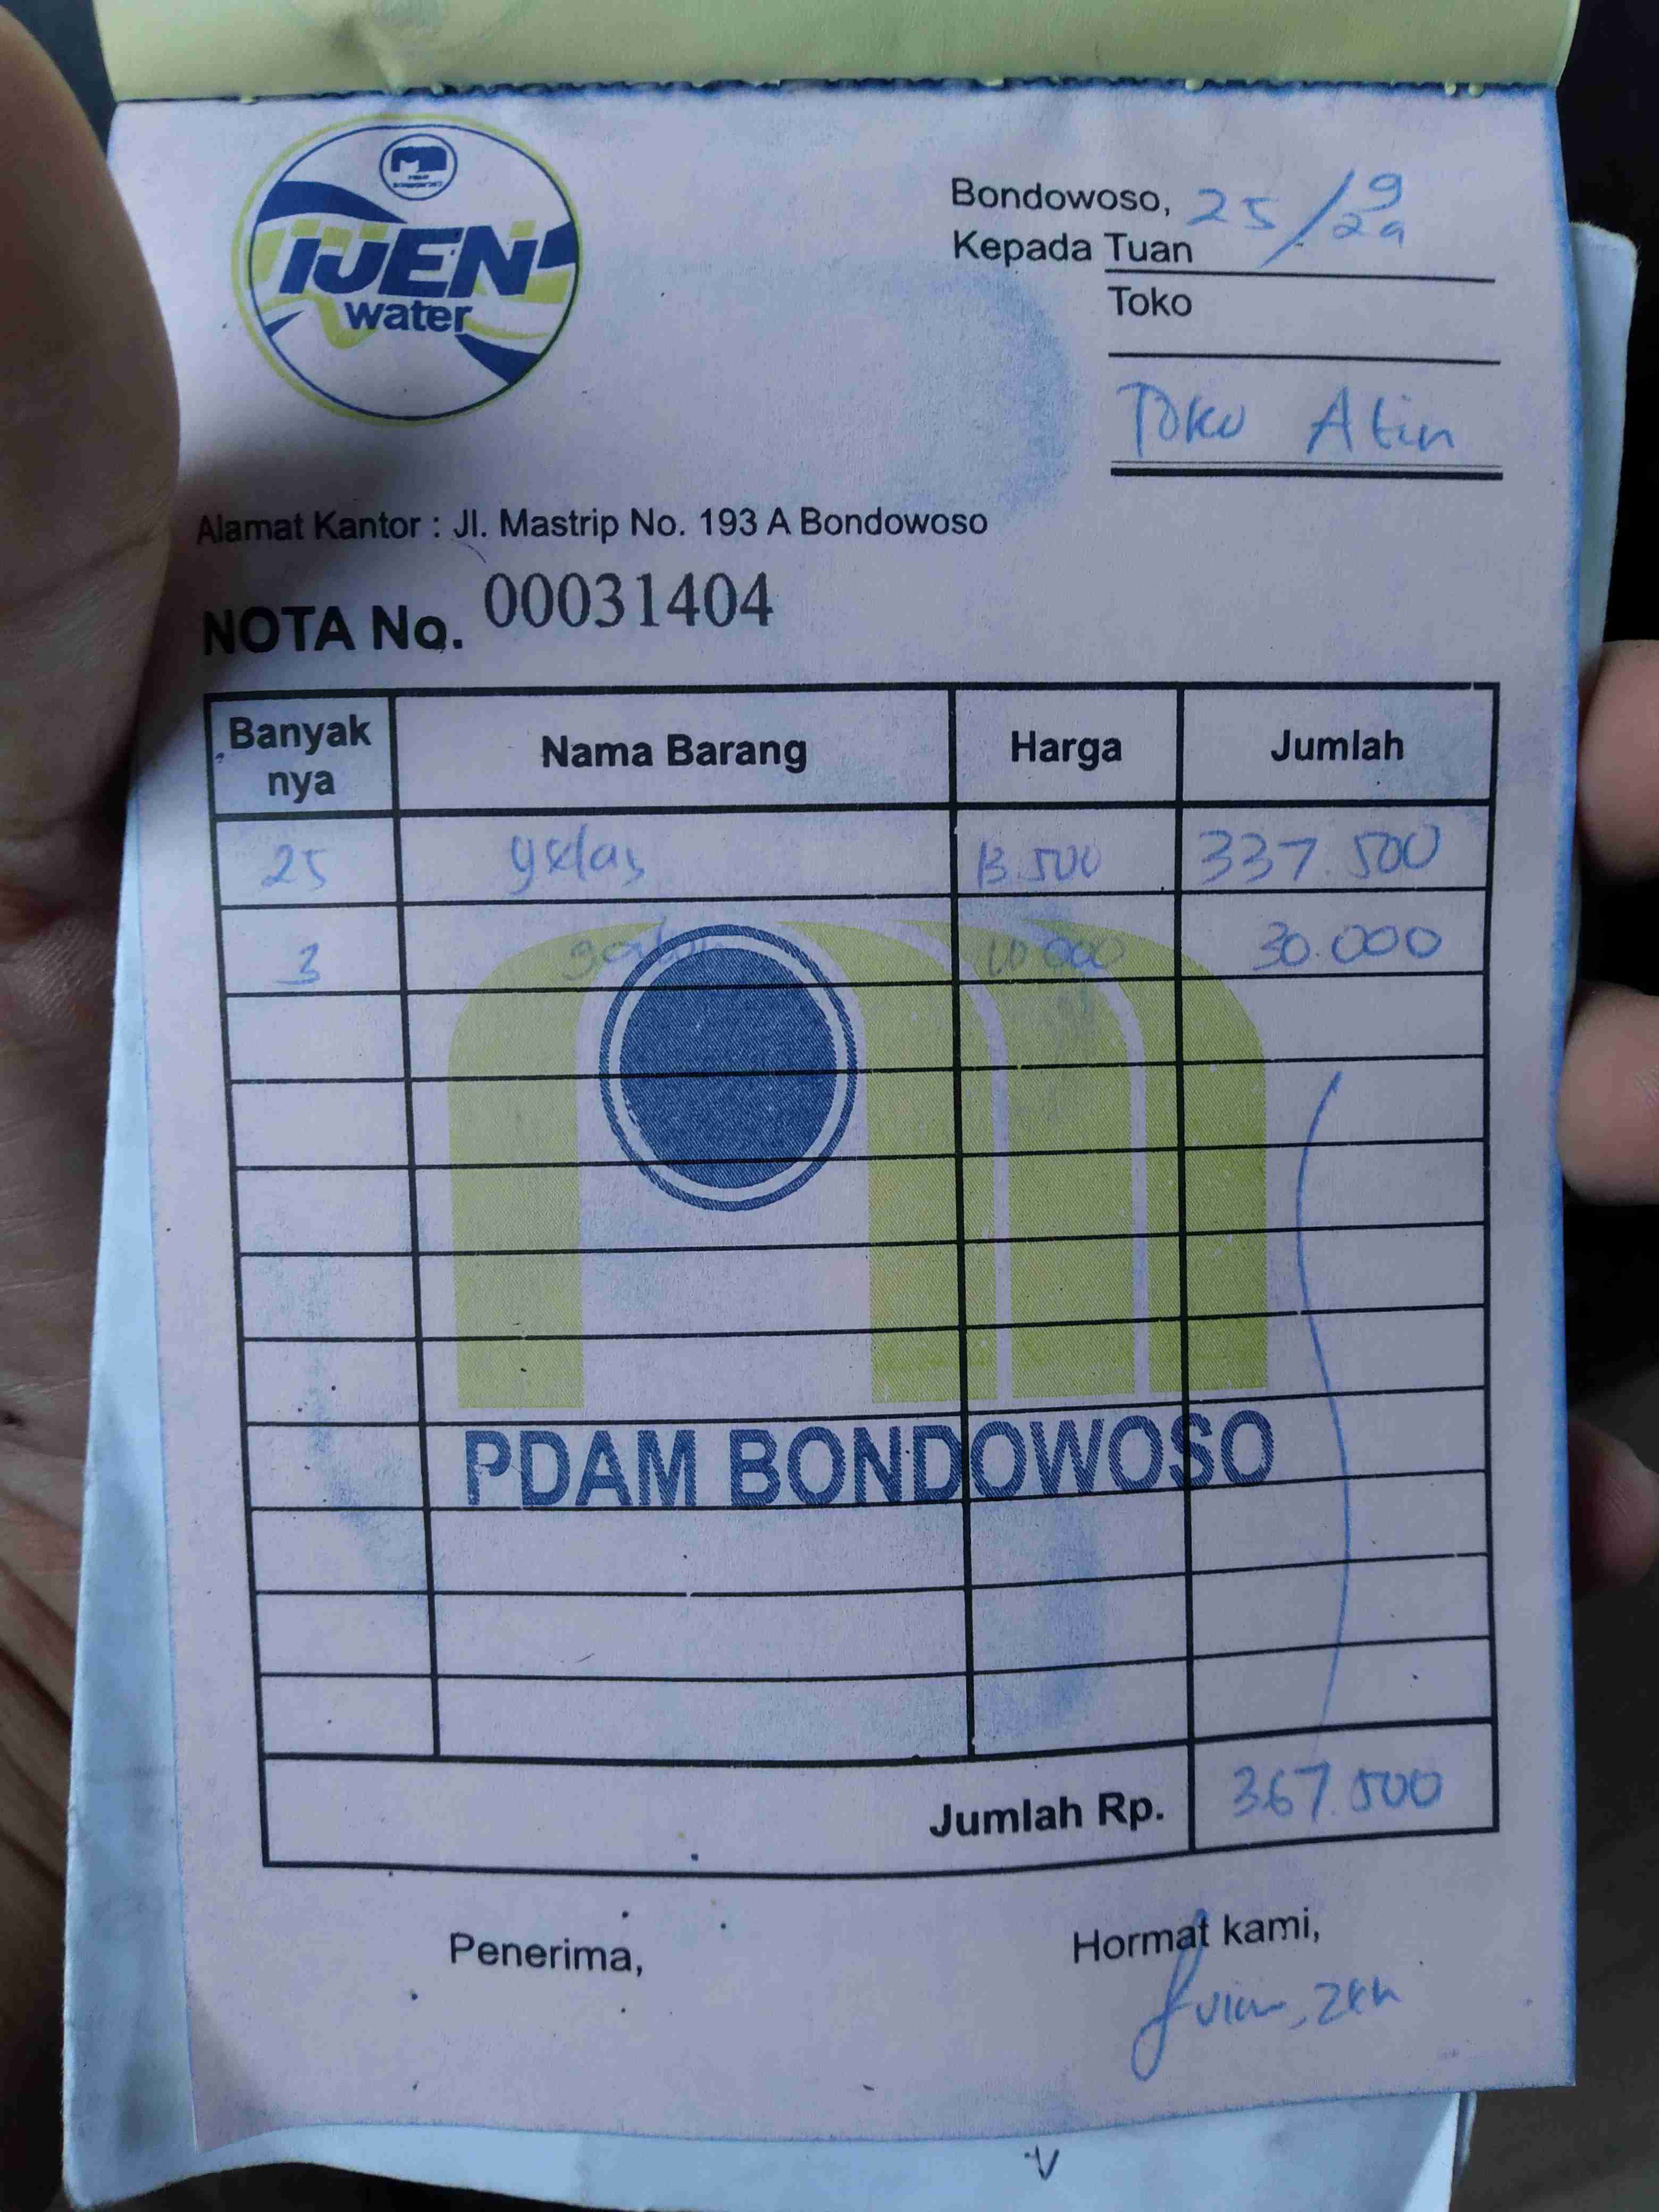 IJEN
water
Bondowoso, 25/9
Kepada Tuan
Toko
Toko Atin
Alamat Kantor : Jl. Mastrip No. 193 A Bondowoso
NOTA No. 00031404
Banyak nya Nama Barang Harga Jumlah
25 gelas 13.500 337.500
3 10.000 30.000
PDAM BONDOWOSO
Jumlah Rp. 367.500
Penerima, Hormat kami,